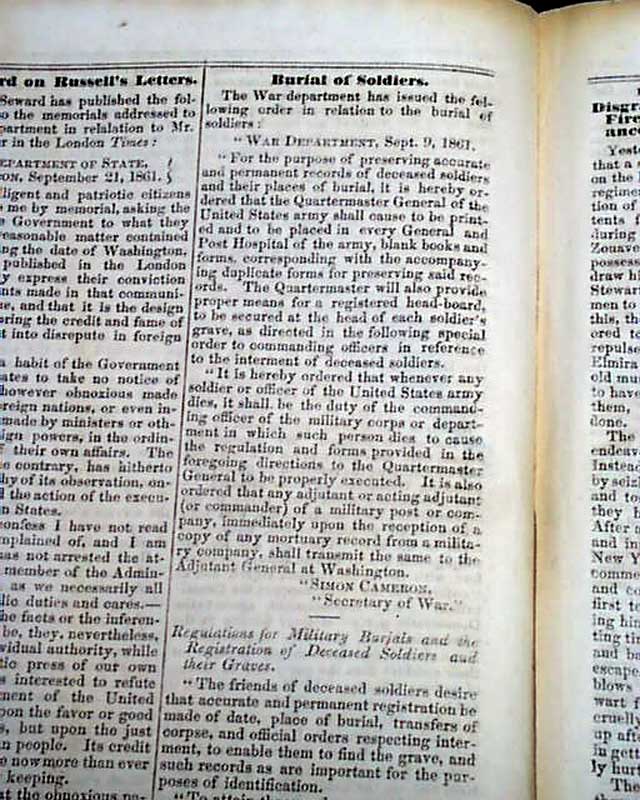 rd on Russell's Letters.
Seward has published the fol-
o the memorials addressed to
partment in relalation to Mr.
r in the London Times:
EPARTMENT OF STATE,
ON, September 21, 1861.
lligent and patriotic citizens
s me by memorial, asking the
e Government to what they
reasonable matter contained
ng the date of Washington,
published in the London
y express their conviction
nts made in that communi-
ue, and that it is the design
ring the credit and fame of
t into disrepute in foreign
a habit of the Government
ates to take no notice of
however obnoxious made
reign nations, or even in-
made by ministers or oth-
ign powers, in the ordin-
f their own affairs. The
e contrary, has hitherto
hy of its observation, on-
d the action of the execu-
n States.
confess I have not read
mplained of, and I am
has not arrested the at-
member of the Admin-
as we necessarily all
lic duties and cares.—
he facts or the inferen-
be, they, nevertheless,
vidual authority, while
tic press of our own
s interested to refute
nment of the United
pon the favor or good
s, but upon the just
n people. Its credit
e now more than ever
keeping.
at the obnoxious pa-
Burial of Soldiers.
The War department has issued the fol-
lowing order in relation to the burial of
soldiers:
"WAR DEPARTMENT, Sept. 9, 1861.
"For the purpose of preserving accurate
and permanent records of deceased soldiers
and their places of burial, it is hereby or-
dered that the Quartermaster General of the
United States army shall cause to be print-
ed and to be placed in every General and
Post Hospital of the army, blank books and
forms, corresponding with the accompany-
ing duplicate forms for preserving said rec-
ords. The Quartermaster will also provide
proper means for a registered head-board,
to be secured at the head of each soldier's
grave, as directed in the following special
order to commanding officers in reference
to the interment of deceased soldiers.
"It is hereby ordered that whenever any
soldier or officer of the United States army
dies, it shall be the duty of the command-
ing officer of the military corps or depart-
ment in which such person dies to cause
the regulation and forms provided in the
foregoing directions to the Quartermaster
General to be properly executed. It is also
ordered that any adjutant or acting adjutant
(or commander) of a military post or com-
pany, immediately upon the reception of a
copy of any mortuary record from a milita-
ry company, shall transmit the same to the
Adjutant General at Washington.
"SIMON CAMERON,
"Secretary of War."
Regulations for Military Burials and the
Registration of Deceased Soldiers and
their Graves.
"The friends of deceased soldiers desire
that accurate and permanent registration be
made of date, place of burial, transfers of
corpse, and official orders respecting inter-
ment, to enable them to find the grave, and
such records as are important for the pur-
poses of identification.
Disgra
Fire
ance
Yeste
that a
on the
regimen
tion of
tents f
during
Zouave
possess
draw h
Stewar
men to
this, th
ered to
repulse
Elmira
old mu
to have
them,
done.
The
endeav
Instea
by seiz
and to
they h
After a
and in
New Y
comme
and co
first t
ing hi
ting ti
and ba
escape
blows
wart f
cruelly
up afte
in gett
ly hurt
The